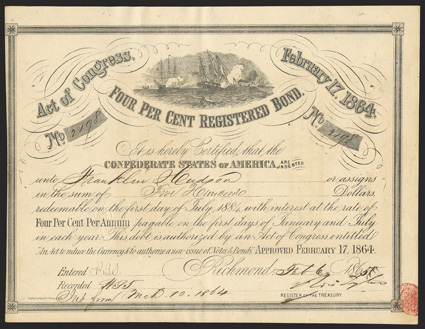 Act of Congress, February 17, 1864.
FOUR PER CENT REGISTERED BOND.
No No
It is hereby Certified, that the
CONFEDERATE STATES OF AMERICA, ARE INDEBTED
unto Franklin Hudson or assigns
in the sum of Five Hundred Dollars.
redeemable on the first day of July 1884, with interest at the rate of
Four Per Cent Per Annum payable on the first days of January and July
in each year. This debt is authorized by an Act of Congress entitled
"An Act to reduce the Currency & to authorize a new issue of Notes & Bonds" APPROVED FEBRUARY 17, 1864.
Entered Richmond, 1865
Recorded
Int from 10. 1864
REGISTER OF THE TREASURY